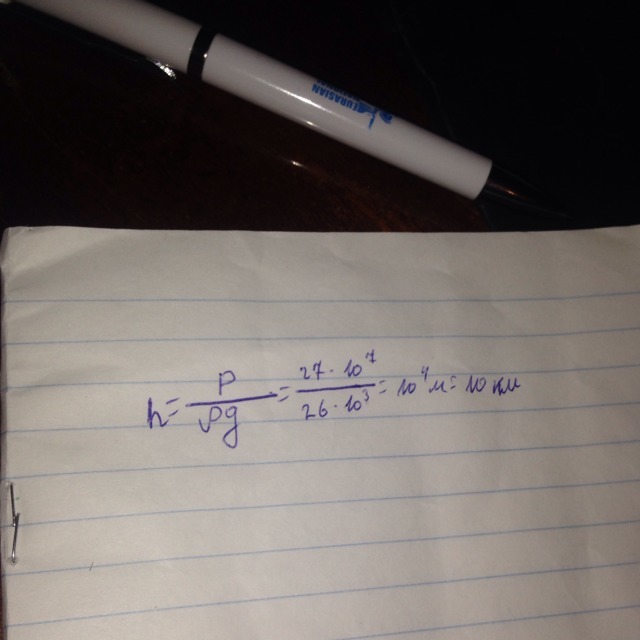 EURASIAN
h = P / ρg = 27 · 10⁷ / 26 · 10³ = 10⁴ м = 10 км